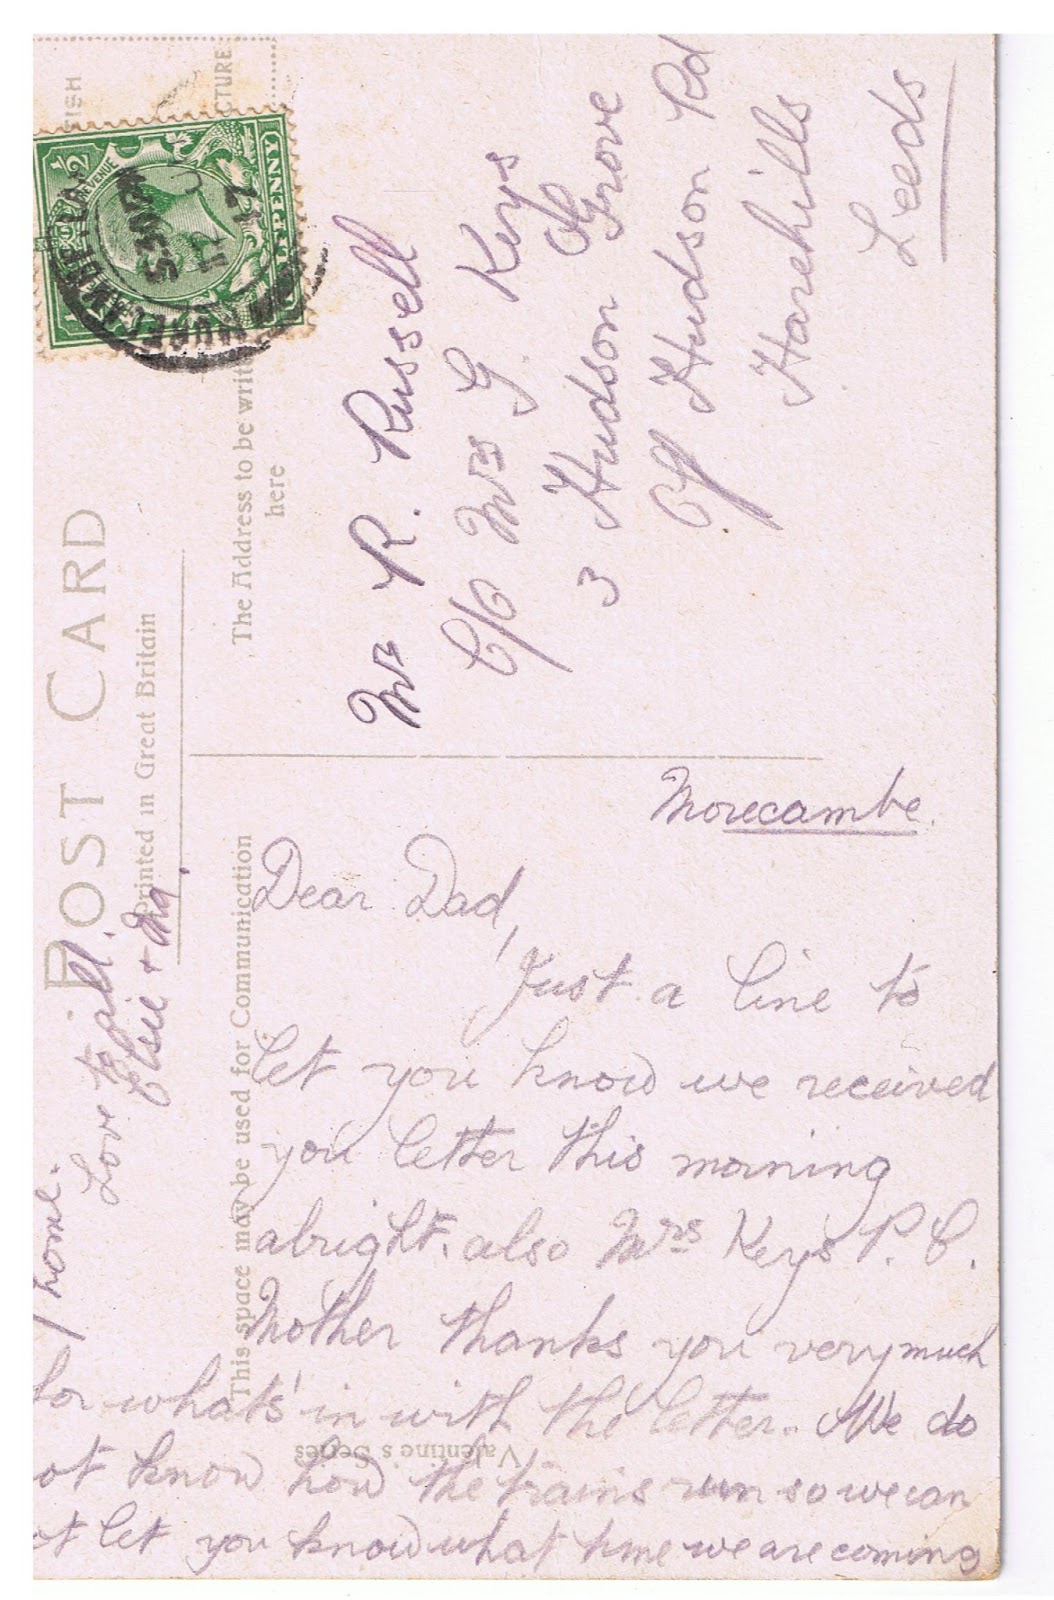 POST CARD
Printed in Great Britain
This space may be used for Communication
The Address to be writ
here
Valentine's Series
CTURE
REVENUE
Mr R. Russell
C/o Mrs G Keys
3 Hudson Grove
Off Hudson Rd
Harehills
Leeds
Morecambe.
Dear Dad,
Just a line to
let you know we received
you letter this morning
alright. also Mrs Keys P. C.
Mother thanks you very much
for whats' in with the letter. We do
ot know how the trains run so we can
ot let you know what time we are coming
home.
Love to all.
Elsie + Ma.